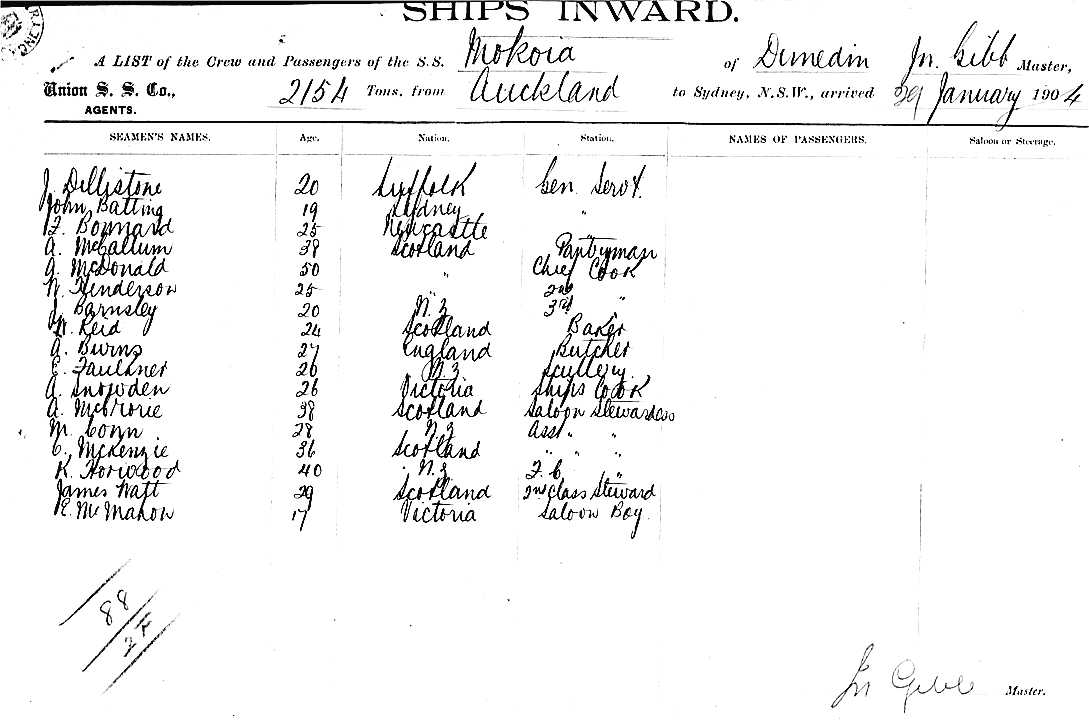 SHIPS INWARD.
A LIST of the Crew and Passengers of the S.S. Mokoia of Dunedin Jn. Gibb Master,
Union S. S. Co., AGENTS. 2154 Tons, from Auckland to Sydney, N.S.W., arrived 29 January 1904
SEAMEN'S NAMES. Age. Nation. Station. NAMES OF PASSENGERS. Saloon or Steerage.
J. Dellistone 20 Suffolk Gen. Servt.
John Batting 19 Sydney "
F. Bonnard 25 Newcastle "
A. McCallum 38 Scotland Pantryman
A. McDonald 50 " Chief Cook
W. Henderson 25 " 2nd "
J. Barnsley 20 N.Z 3rd "
W. Reid 24 Scotland Baker
A. Burns 27 England Butcher
E. Faulkner 20 N.Z Scullery
A. Snowden 26 Victoria Ships Cook
A. 38 Scotland Saloon Stewardess
M. Conn 28 N.Z Asst " "
C. McKenzie 36 Scotland " " "
K. Horwood 40 N.Z F.C. "
James Watt 29 Scotland 2nd Class Steward
E. McMahon 17 Victoria Saloon Boy.
88
Jn Gibb Master.